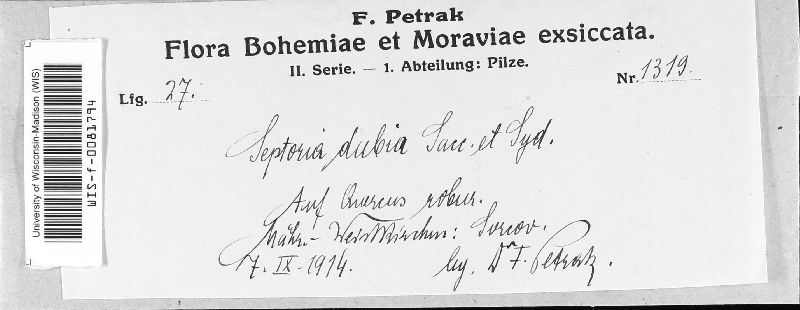 F. Petrak
Flora Bohemiae et Moraviae exsiccata.
II. Serie. — 1. Abteilung: Pilze.
Lfg. 27.
Nr. 1319.
Septoria dubia Sacc. et Syd.
Auf Quercus robur.
Mähr.-Weisskirchen:
17. IX. 1914. leg. Dr F. Petrak.
University of Wisconsin-Madison (WIS)
WIS-f-0081794